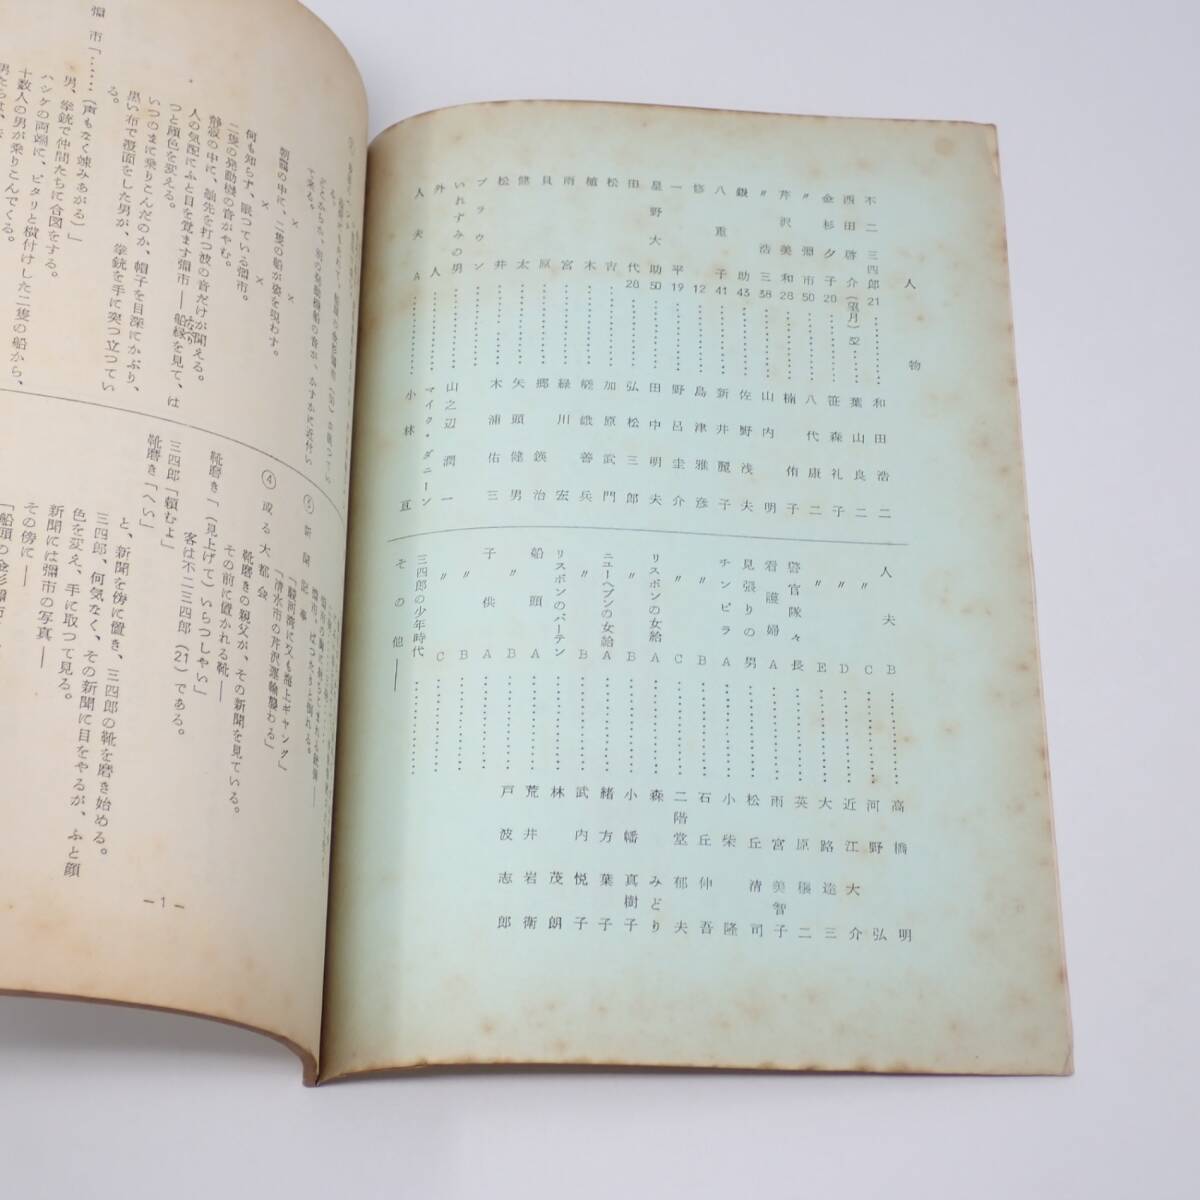 人物
不二三四郎21…………和田浩二
西田啓介(望月)52…………葉山良二
金杉夕子20…………笹森礼子
〃彌市50…………八代康二
芹沢美和28…………楠侑子
〃浩三38…………山内明
銀助43…………佐野浅夫
八重子41…………新井麗子
修12…………島津雅彦
一平19…………野呂圭介
星野大助50…………田中明夫
田代28…………弘松三郎
松吉…………加原武門
植木…………嵯峨善兵
雨宮…………緑川宏
貝原…………郷鍈治
健太…………矢頭健男
松井…………木浦佑三
ブラウン…………
いれずみの男…………山之辺潤一
外人…………マイク・ダニーン
人夫A…………小林亘
人夫B…………高橋明
〃C…………河野弘
〃D…………近江大介
〃E…………大路達三
警官隊々長…………英原穣二
看護婦A…………雨宮美智子
見張りの男…………松丘清司
チンピラA…………小柴隆
〃B…………石丘伸吾
〃C…………二階堂郁夫
リスボンの女給A…………森みどり
〃B…………小幡真樹子
ニューヘブンの女給A…………緒方葉子
〃B…………武内悦子
リスボンのバーテン…………林茂朗
船頭A…………荒井岩衛
〃B…………戸波志郎
子供A…………
〃B…………
〃C…………
三四郎の少年時代
その他――
て来る。
× × ×
朝靄の中に、二隻の船が姿を現わす。
何も知らず、眠つている彌市。
二隻の発動機の音がやむ。
静寂の中に、舳先を打つ波の音だけが聞える。
人の気配にふと目を覚ます彌市――船縁を見て、は
つと顔色を変える。
いつのまに乗りこんだのか、帽子を目深にかぶり、
黒い布で覆面をした男が、拳銃を手に突つ立つてい
る。
彌市「……(声もなく竦みあがる)」
男、拳銃で仲間たちに合図をする。
ハシケの両端に、ピタリと横付けした二隻の船から、
十数人の男が乗りこんでくる。
③ 新聞記事
「駿河湾に又も海上ギャング」
「清水市の芹沢運輸襲わる」
④ 或る大都会
靴磨きの親父が、その新聞を見ている。
その前に置かれる靴――
靴磨き「(見上げて)いらつしやい」
客は不二三四郎(21)である。
三四郎「頼むよ」
靴磨き「へい」
と、新聞を傍に置き、三四郎の靴を磨き始める。
三四郎、何気なく、その新聞に目をやるが、ふと顔
色を変え、手に取つて見る。
新聞には彌市の写真――
その傍に――
―1―